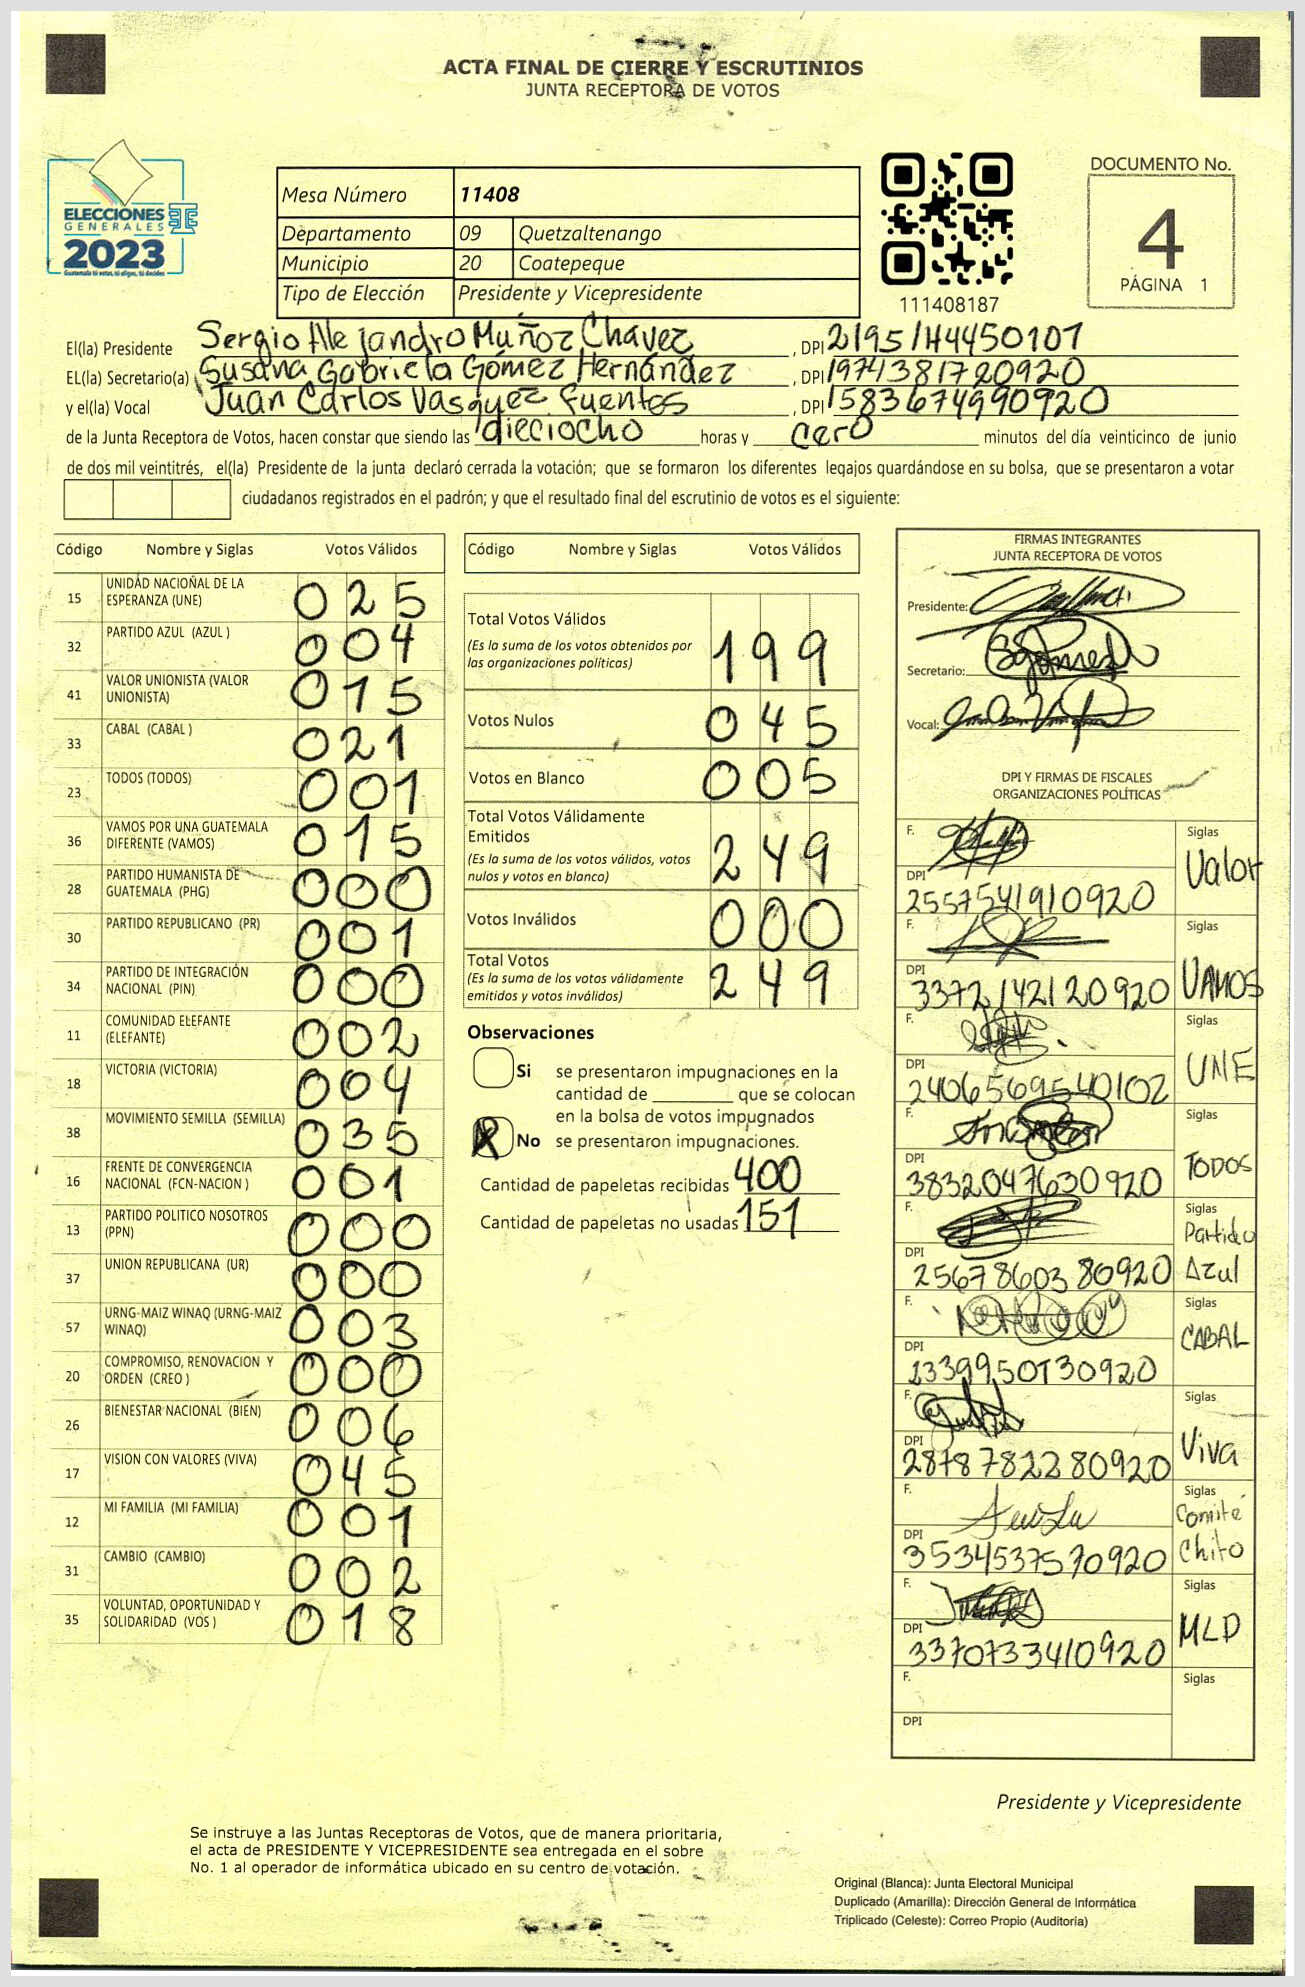 ACTA FINAL DE CIERRE Y ESCRUTINIOS
JUNTA RECEPTORA DE VOTOS
ELECCIONES
GENERALES
2023
Guatemala tú votas, tú eliges, tú decides
Mesa Número 11408
Departamento 09 Quetzaltenango
Municipio 20 Coatepeque
Tipo de Elección Presidente y Vicepresidente
111408187
DOCUMENTO No.
4
PÁGINA 1
El(la) Presidente Sergio Alejandro Muñoz Chávez, DPI 2195144450101
EL(la) Secretario(a) Susana Gabriela Gómez Hernández, DPI 1974381720920
y el(la) Vocal Juan Carlos Vasquez Fuentes, DPI 1583674990920
de la Junta Receptora de Votos, hacen constar que siendo las dieciocho horas y cero minutos del día veinticinco de junio
de dos mil veintitrés, el(la) Presidente de la junta declaró cerrada la votación; que se formaron los diferentes legajos quardándose en su bolsa, que se presentaron a votar
ciudadanos registrados en el padrón; y que el resultado final del escrutinio de votos es el siguiente:
Código Nombre y Siglas Votos Válidos
15 UNIDAD NACIOÑAL DE LA ESPERANZA (UNE) 025
32 PARTIDO AZUL (AZUL ) 004
41 VALOR UNIONISTA (VALOR UNIONISTA) 015
33 CABAL (CABAL ) 021
23 TODOS (TODOS) 001
36 VAMOS POR UNA GUATEMALA DIFERENTE (VAMOS) 015
28 PARTIDO HUMANISTA DE GUATEMALA (PHG) 000
30 PARTIDO REPUBLICANO (PR) 001
34 PARTIDO DE INTEGRACIÓN NACIONAL (PIN) 000
11 COMUNIDAD ELEFANTE (ELEFANTE) 002
18 VICTORIA (VICTORIA) 004
38 MOVIMIENTO SEMILLA (SEMILLA) 035
16 FRENTE DE CONVERGENCIA NACIONAL (FCN-NACION ) 001
13 PARTIDO POLITICO NOSOTROS (PPN) 000
37 UNION REPUBLICANA (UR) 000
57 URNG-MAIZ WINAQ (URNG-MAIZ WINAQ) 003
20 COMPROMISO, RENOVACION Y ORDEN (CREO ) 000
26 BIENESTAR NACIONAL (BIEN) 006
17 VISION CON VALORES (VIVA) 045
12 MI FAMILIA (MI FAMILIA) 001
31 CAMBIO (CAMBIO) 002
35 VOLUNTAD, OPORTUNIDAD Y SOLIDARIDAD (VOS ) 018
Código Nombre y Siglas Votos Válidos
Total Votos Válidos
(Es la suma de los votos obtenidos por las organizaciones políticas) 199
Votos Nulos 045
Votos en Blanco 005
Total Votos Válidamente Emitidos
(Es la suma de los votos válidos, votos nulos y votos en blanco) 249
Votos Inválidos 000
Total Votos
(Es la suma de los votos válidamente emitidos y votos inválidos) 249
Observaciones
Si se presentaron impugnaciones en la
cantidad de ________ que se colocan
en la bolsa de votos impugnados
X No se presentaron impugnaciones.
Cantidad de papeletas recibidas 400
Cantidad de papeletas no usadas 151
FIRMAS INTEGRANTES
JUNTA RECEPTORA DE VOTOS
Presidente:
Secretario:
Vocal:
DPI Y FIRMAS DE FISCALES
ORGANIZACIONES POLÍTICAS
F. Siglas Valor
DPI 2557541910920
F. Siglas VAMOS
DPI 3372142120920
F. Siglas UNE
DPI 2406569540102
F. Siglas TODOS
DPI 3832047630920
F. Siglas Partido Azul
DPI 2567860380920
F. Siglas CABAL
DPI 2339950130920
F. Siglas Viva
DPI 2878782280920
F. Siglas Comité Chito
DPI 3534537570920
F. Siglas MLD
DPI 3370733410920
F. Siglas
DPI
Presidente y Vicepresidente
Se instruye a las Juntas Receptoras de Votos, que de manera prioritaria,
el acta de PRESIDENTE Y VICEPRESIDENTE sea entregada en el sobre
No. 1 al operador de informática ubicado en su centro de votación.
Original (Blanca): Junta Electoral Municipal
Duplicado (Amarilla): Dirección General de Informática
Triplicado (Celeste): Correo Propio (Auditoría)